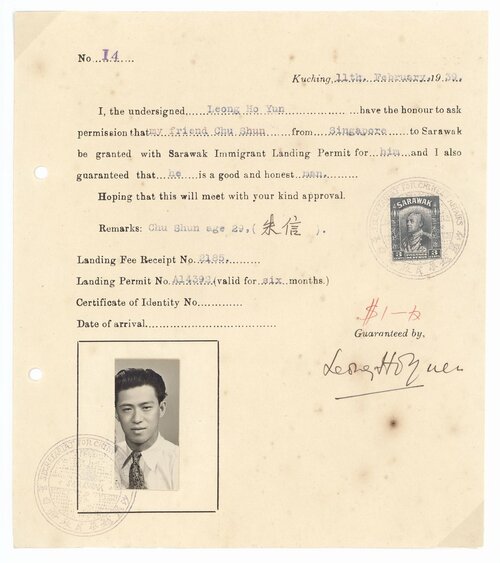 No...14......
Kuching, 11th. February, 1939.
I, the undersigned....Leong Ho Yun....................have the honour to ask
permission that my friend Chu Shun....from....Singapore....to Sarawak
be granted with Sarawak Immigrant Landing Permit for him and I also
guaranteed that he is a good and honest man.
Hoping that this will meet with your kind approval.
Remarks: Chu Shun age 29,(朱信 ).
SARAWAK
Landing Fee Receipt No. 2195.
Landing Permit No. A14390 (valid for six months.)
Certificate of Identity No............
Date of arrival...................................
$1-
Guaranteed by,
Leong Ho Yuen